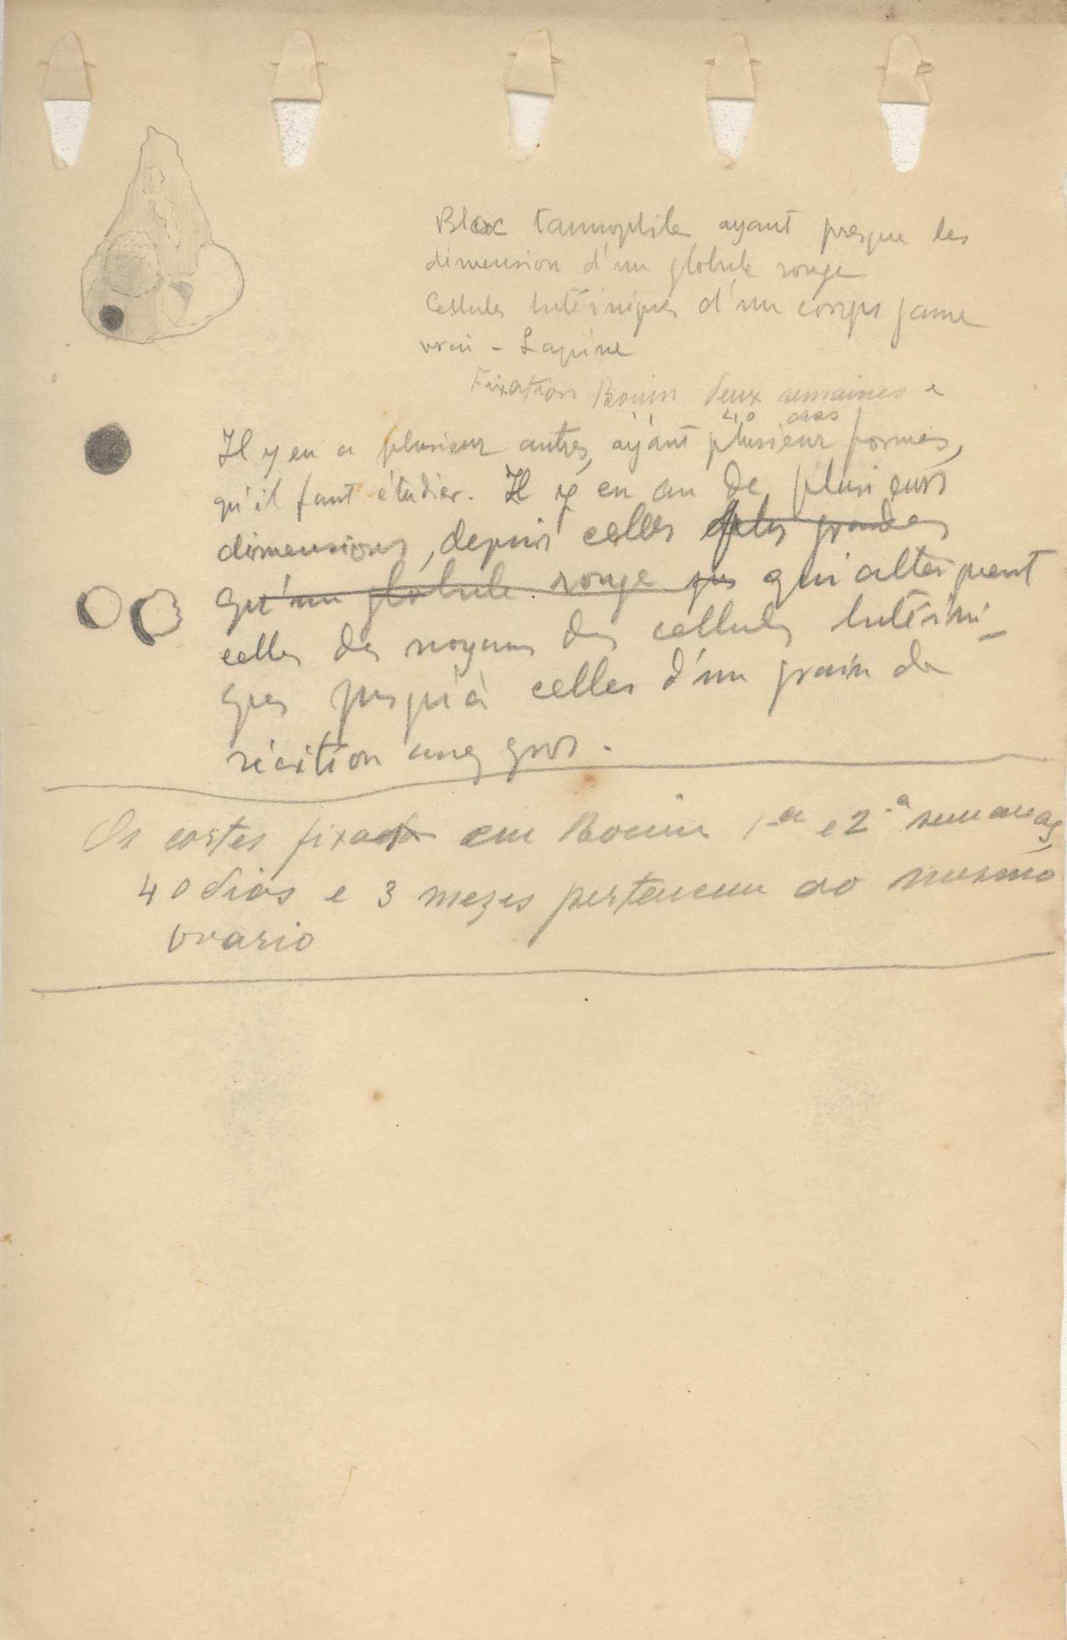 Bloc tannophile ayant presque les
dimension d'un globule rouge
Cellules lutéiniques d'un corps jaune
vrai - Lapine
Fixation Bouin deux semaines e
40 dias
Il y en a plusieur autres, ayant plusieur formes,
qu'il faut étudier. Il y en au de plusieurs
dimensions, depuis celles plus grandes
qu'un globule rouge qui atteignent
celles des noyaus des cellules lutéini-
ques jusqu'à celles d'un grain de
sécrétion gros.
Os cortes fixados em Bouin 1-a e 2-a semanas,
40 dias e 3 mezes pertencem ao mesmo
ovario